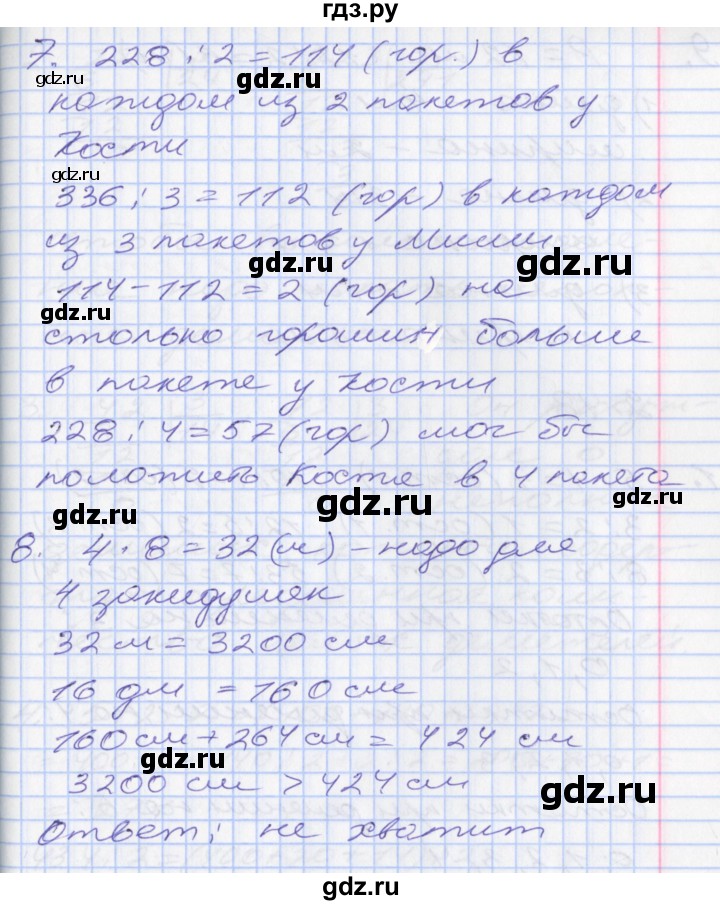 гдз.ру
7. 228 : 2 = 114 (гор.) в
gdz.ru
каждом из 2 пакетов у
gdz.ru
Кости
gdz.ru
336 : 3 = 112 (гор) в каждом
из 3 пакетов у Миши
gdz.ru gdz.ru
114 - 112 = 2 (гор) на
gdz.ru
столько горошин больше
в пакете у Кости
228 : 4 = 57 (гор) мог бы
положить Костя в 4 пакета
gdz.ru gdz.ru gdz.ru
8. 4 · 8 = 32 (м) - надо для
4 закидушек
32 м = 3200 см
16 дм = 160 см
160 см + 264 см = 424 см
gdz.ru
3200 см > 424 см
gdz.ru
Ответ: не хватит
gdz.ru